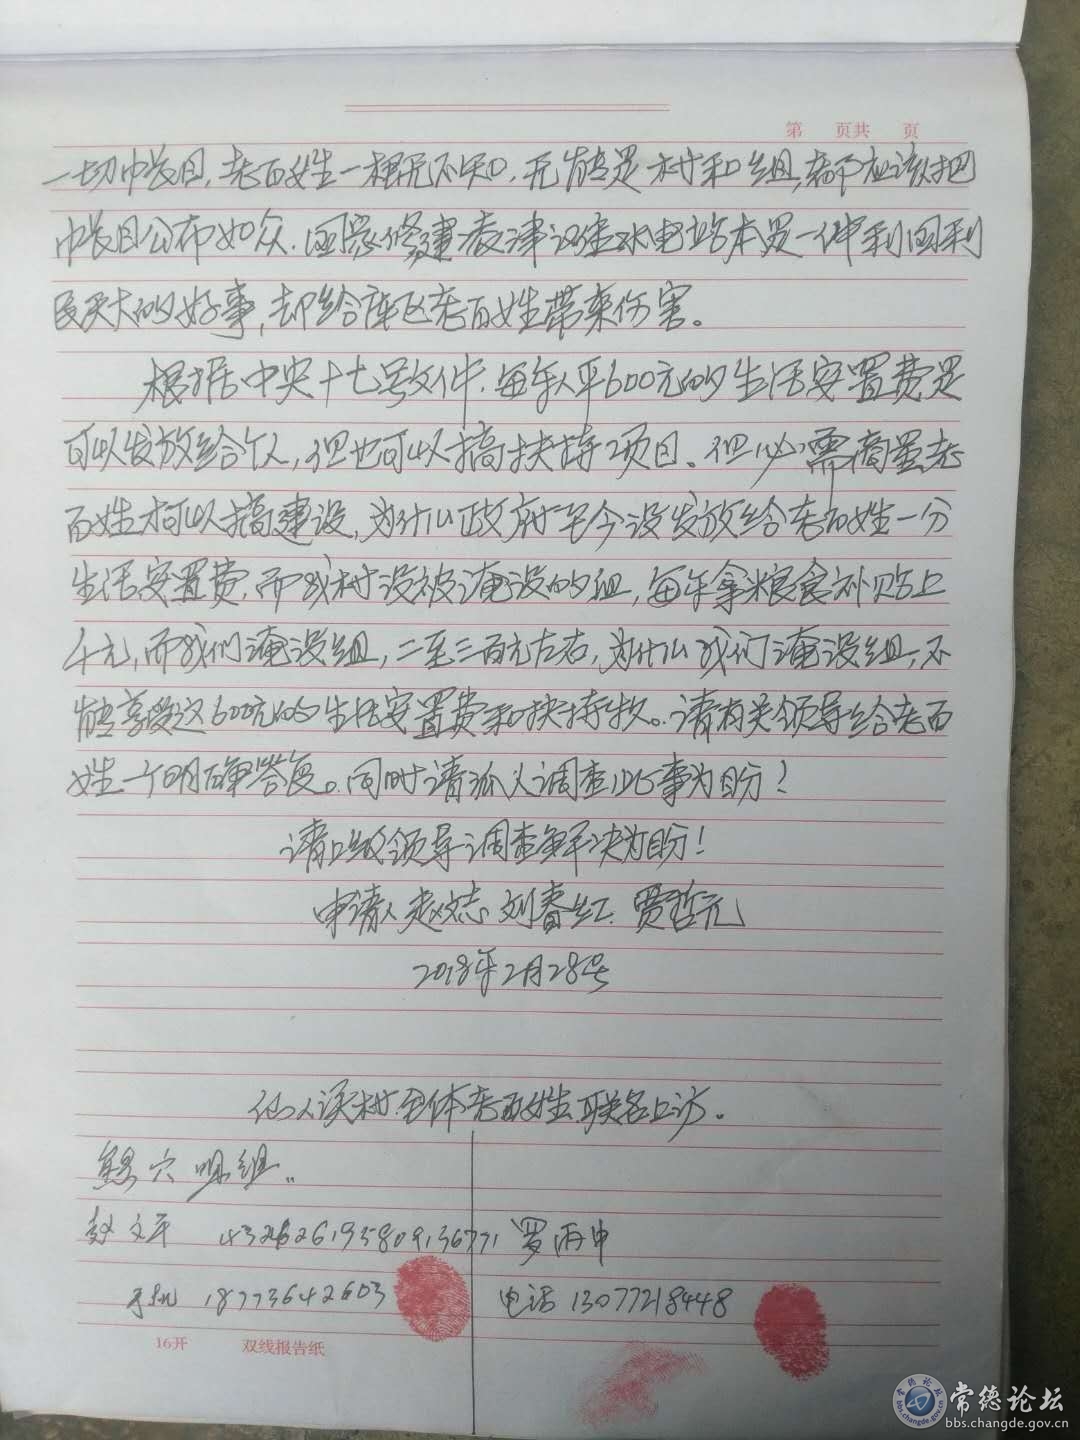 第 页共 页
一切账目，老百姓一概无不知，无论是村和组，都应该把
账目公布如众．国家修建凌津滩水电站本是一件利国利
民天大的好事，却给库区老百姓带来伤害。
根据中央十七号文件．每年人平600元的生活安置费是
可以发放给个人，但也可以搞扶持项目、但必需商量老
百姓才可以搞建设，为什么政府至今没发放给老百姓一分
生活安置费．而我村没被淹没的组，每年拿粮食补贴上
千元，而我们淹没组，二至三百元左右，为什么我们淹没组，不
能享受这600元的生活安置费和扶持款。请有关领导给老百
姓一个明确答复。同时请派人调查此事为盼！
请上级领导调查解决为盼！
申请人 赵文志 刘春红 贾哲元
2018年2月28号
仙人溪村全体老百姓联名上访．
穴咀组..
赵文平 432626195809136771 罗丙申
手机 18773642603 电话 13077218448
16开 双线报告纸
常德论坛
bbs.changde.gov.cn